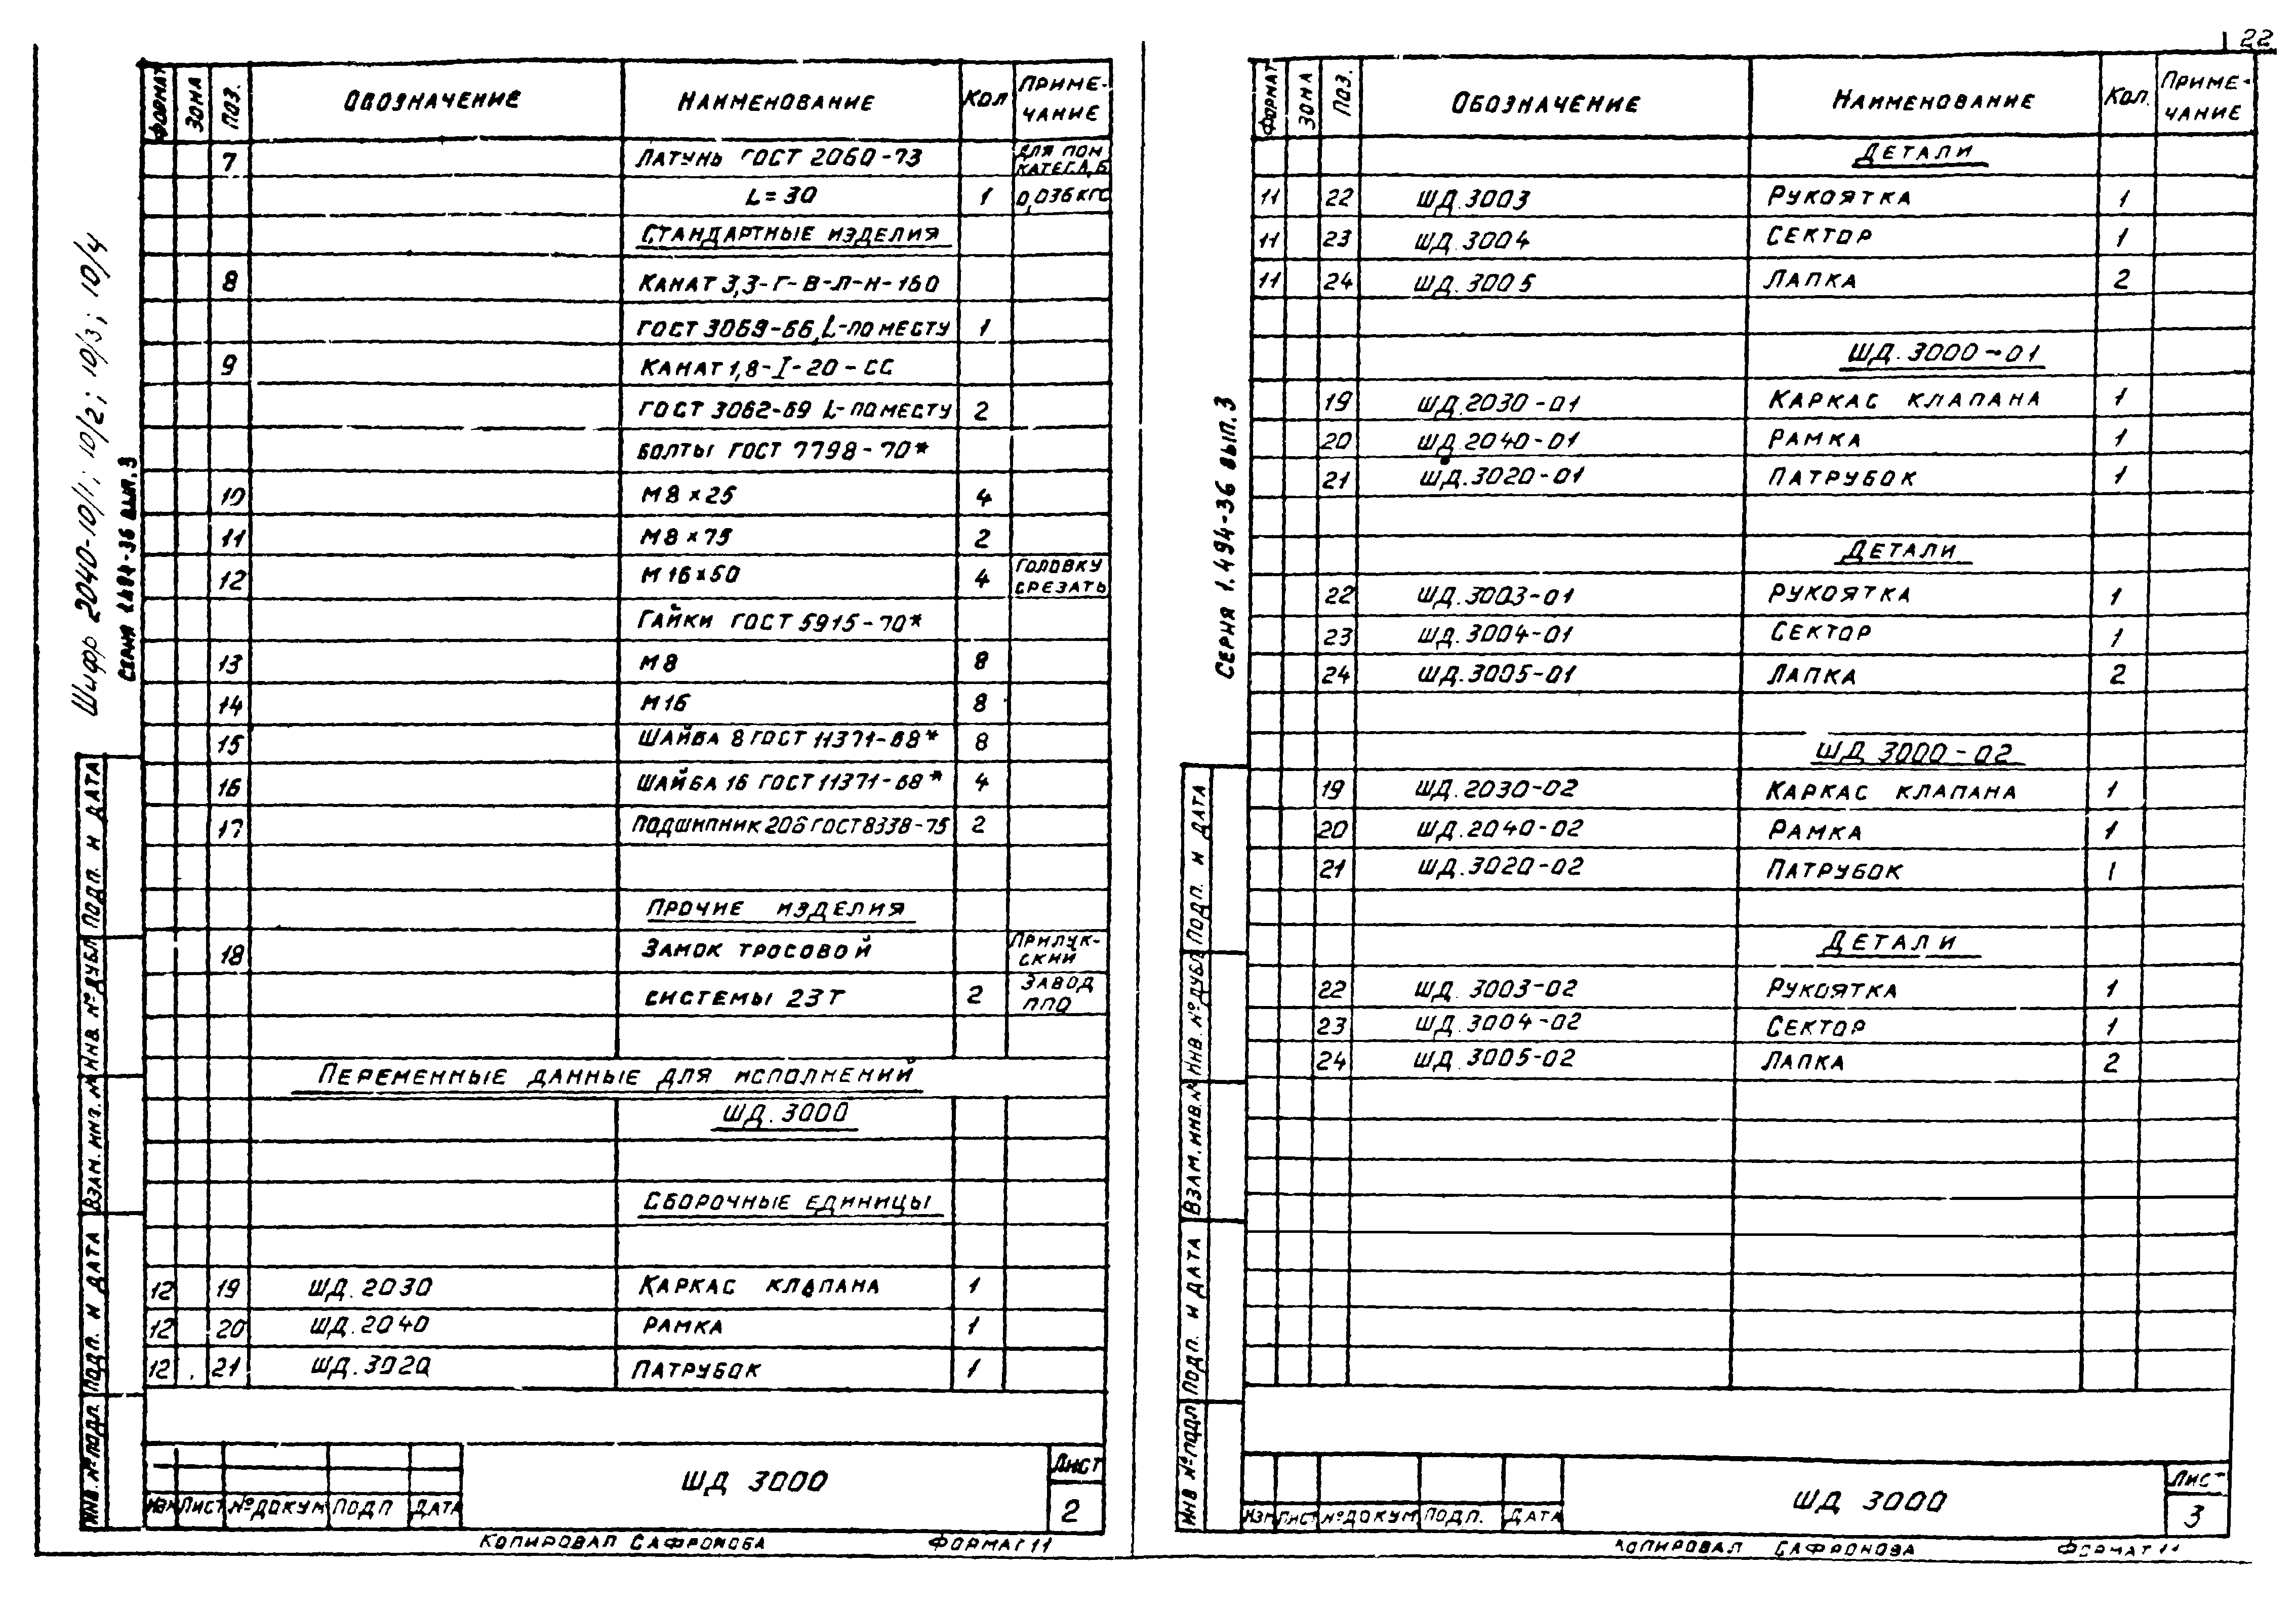 22
Шифр 2040-10/1; 10/2; 10/3; 10/4
Серия 1.494-36 вып.3
Формат Зона Поз. Обозначение Наименование Кол Приме-
чание
7 Латунь ГОСТ 2060-73 для пом
катег.А,Б
L=30 1 0,036кгс
Стандартные изделия
8 Канат 3,3-Г-В-Л-Н-160
ГОСТ 3069-66, L-по месту 1
9 Канат 1,8-I-20-СС
ГОСТ 3062-69 L-по месту 2
Болты ГОСТ 7798-70*
10 М8×25 4
11 М8×75 2
12 М16×50 4 Головку
срезать
Гайки ГОСТ 5915-70*
13 М8 8
14 М16 8
15 Шайба 8 ГОСТ 11371-68* 8
16 Шайба 16 ГОСТ 11371-68* 4
17 Подшипник 206 ГОСТ 8338-75 2
Прочие изделия
18 Замок тросовой Прилук-
ский
системы 23Т 2 завод
ППО
Переменные данные для исполнений
ШД.3000
Сборочные единицы
12 19 ШД.2030 Каркас клапана 1
12 20 ШД.2040 Рамка 1
12 21 ШД.3020 Патрубок 1
Инв.№подл. Подп. и дата Взам.инв.№ Инв.№дубл Подп. и дата
Изм Лист №докум Подп Дата
ШД 3000
Лист
2
Копировал Сафронова Формат 11
Серия 1.494-36 вып.3
Формат Зона Поз. Обозначение Наименование Кол. Приме-
чание
Детали
11 22 ШД.3003 Рукоятка 1
11 23 ШД.3004 Сектор 1
11 24 ШД.3005 Лапка 2
ШД.3000-01
19 ШД.2030-01 Каркас клапана 1
20 ШД.2040-01 Рамка 1
21 ШД.3020-01 Патрубок 1
Детали
22 ШД.3003-01 Рукоятка 1
23 ШД.3004-01 Сектор 1
24 ШД.3005-01 Лапка 2
ШД 3000-02
19 ШД.2030-02 Каркас клапана 1
20 ШД.2040-02 Рамка 1
21 ШД.3020-02 Патрубок 1
Детали
22 ШД.3003-02 Рукоятка 1
23 ШД.3004-02 Сектор 1
24 ШД.3005-02 Лапка 2
Инв №подл Подп. и дата Взам.инв.№ Инв.№дубл Подп. и дата
Изм Лист №докум Подп. Дата
ШД 3000
Лист
3
Копировал Сафронова Формат 11